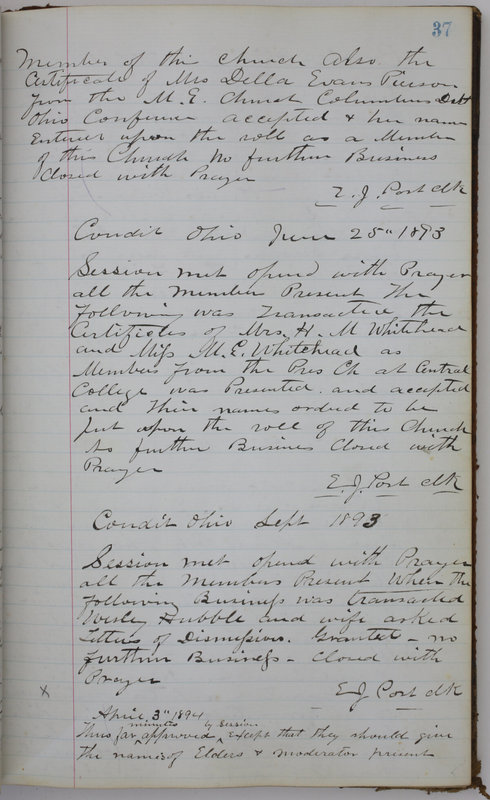 37
Member of this church Also the
Certificate of Mrs Della Evans Pierson
from the M. E. Church Columbus Dist
Ohio Conference accepted & her name
Entered upon the roll as a Member
of this Church No further Business
Closed with Prayer
E. J. Post clk
Condit Ohio June 25" 1893
Session met opend with Prayer
all the Member Present The
following was Transacted the
Certificates of Mrs. H. M Whitehead
and Miss M. E. Whitehead as
Members from the Pres Ch at Central
College was Presented. and accepted
and their names ordred to be
put upon the roll of this Church
No further Busines Closed with
Prayer
E. J. Post clk
Condit Ohio Sept 1893
Session met opend with Prayer
all the Members Present When the
following Business was transacted
Hubble and wife asked
Letters of Dismission. Granted - no
further Business - Closed with
Prayer
E J Post clk
x
April 3" 1894
minutes by Session
Thus far approved, except that they should give
the names of Elders & moderator present